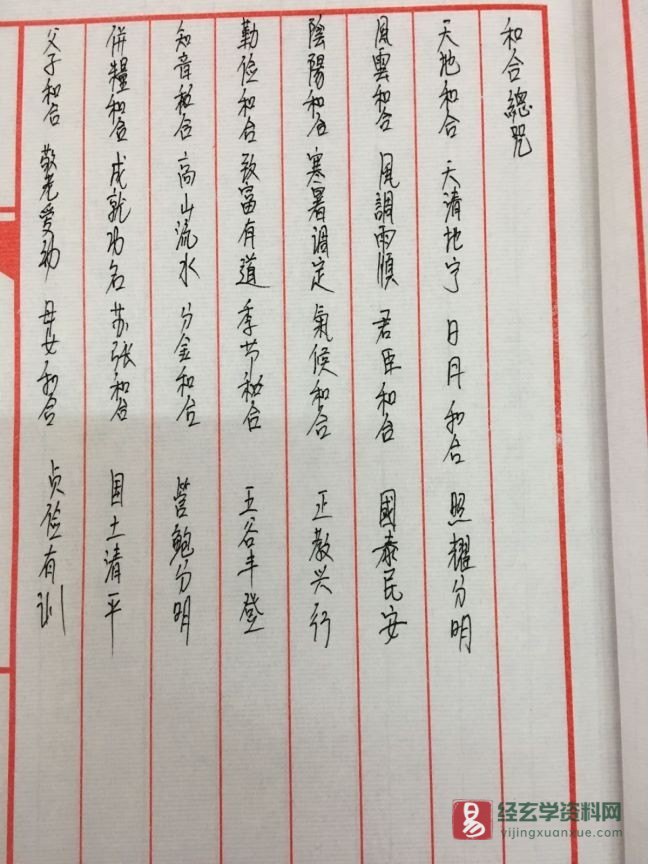 和合總咒
天地和合 天清地宁 日月和合 照耀分明
風雲和合 風調雨順 君臣和合 國泰民安
陰陽和合 寒暑调定 氣候和合 正教兴行
勤俭和合 致富有道 季节和合 五谷丰登
知音和合 高山流水 分金和合 管鲍分明
併糧和合 成就功名 苏张和合 国土清平
父子和合 敬老爱幼 母女和合 贞俭有训
易 经玄学资料网
vijingxuanxue.com